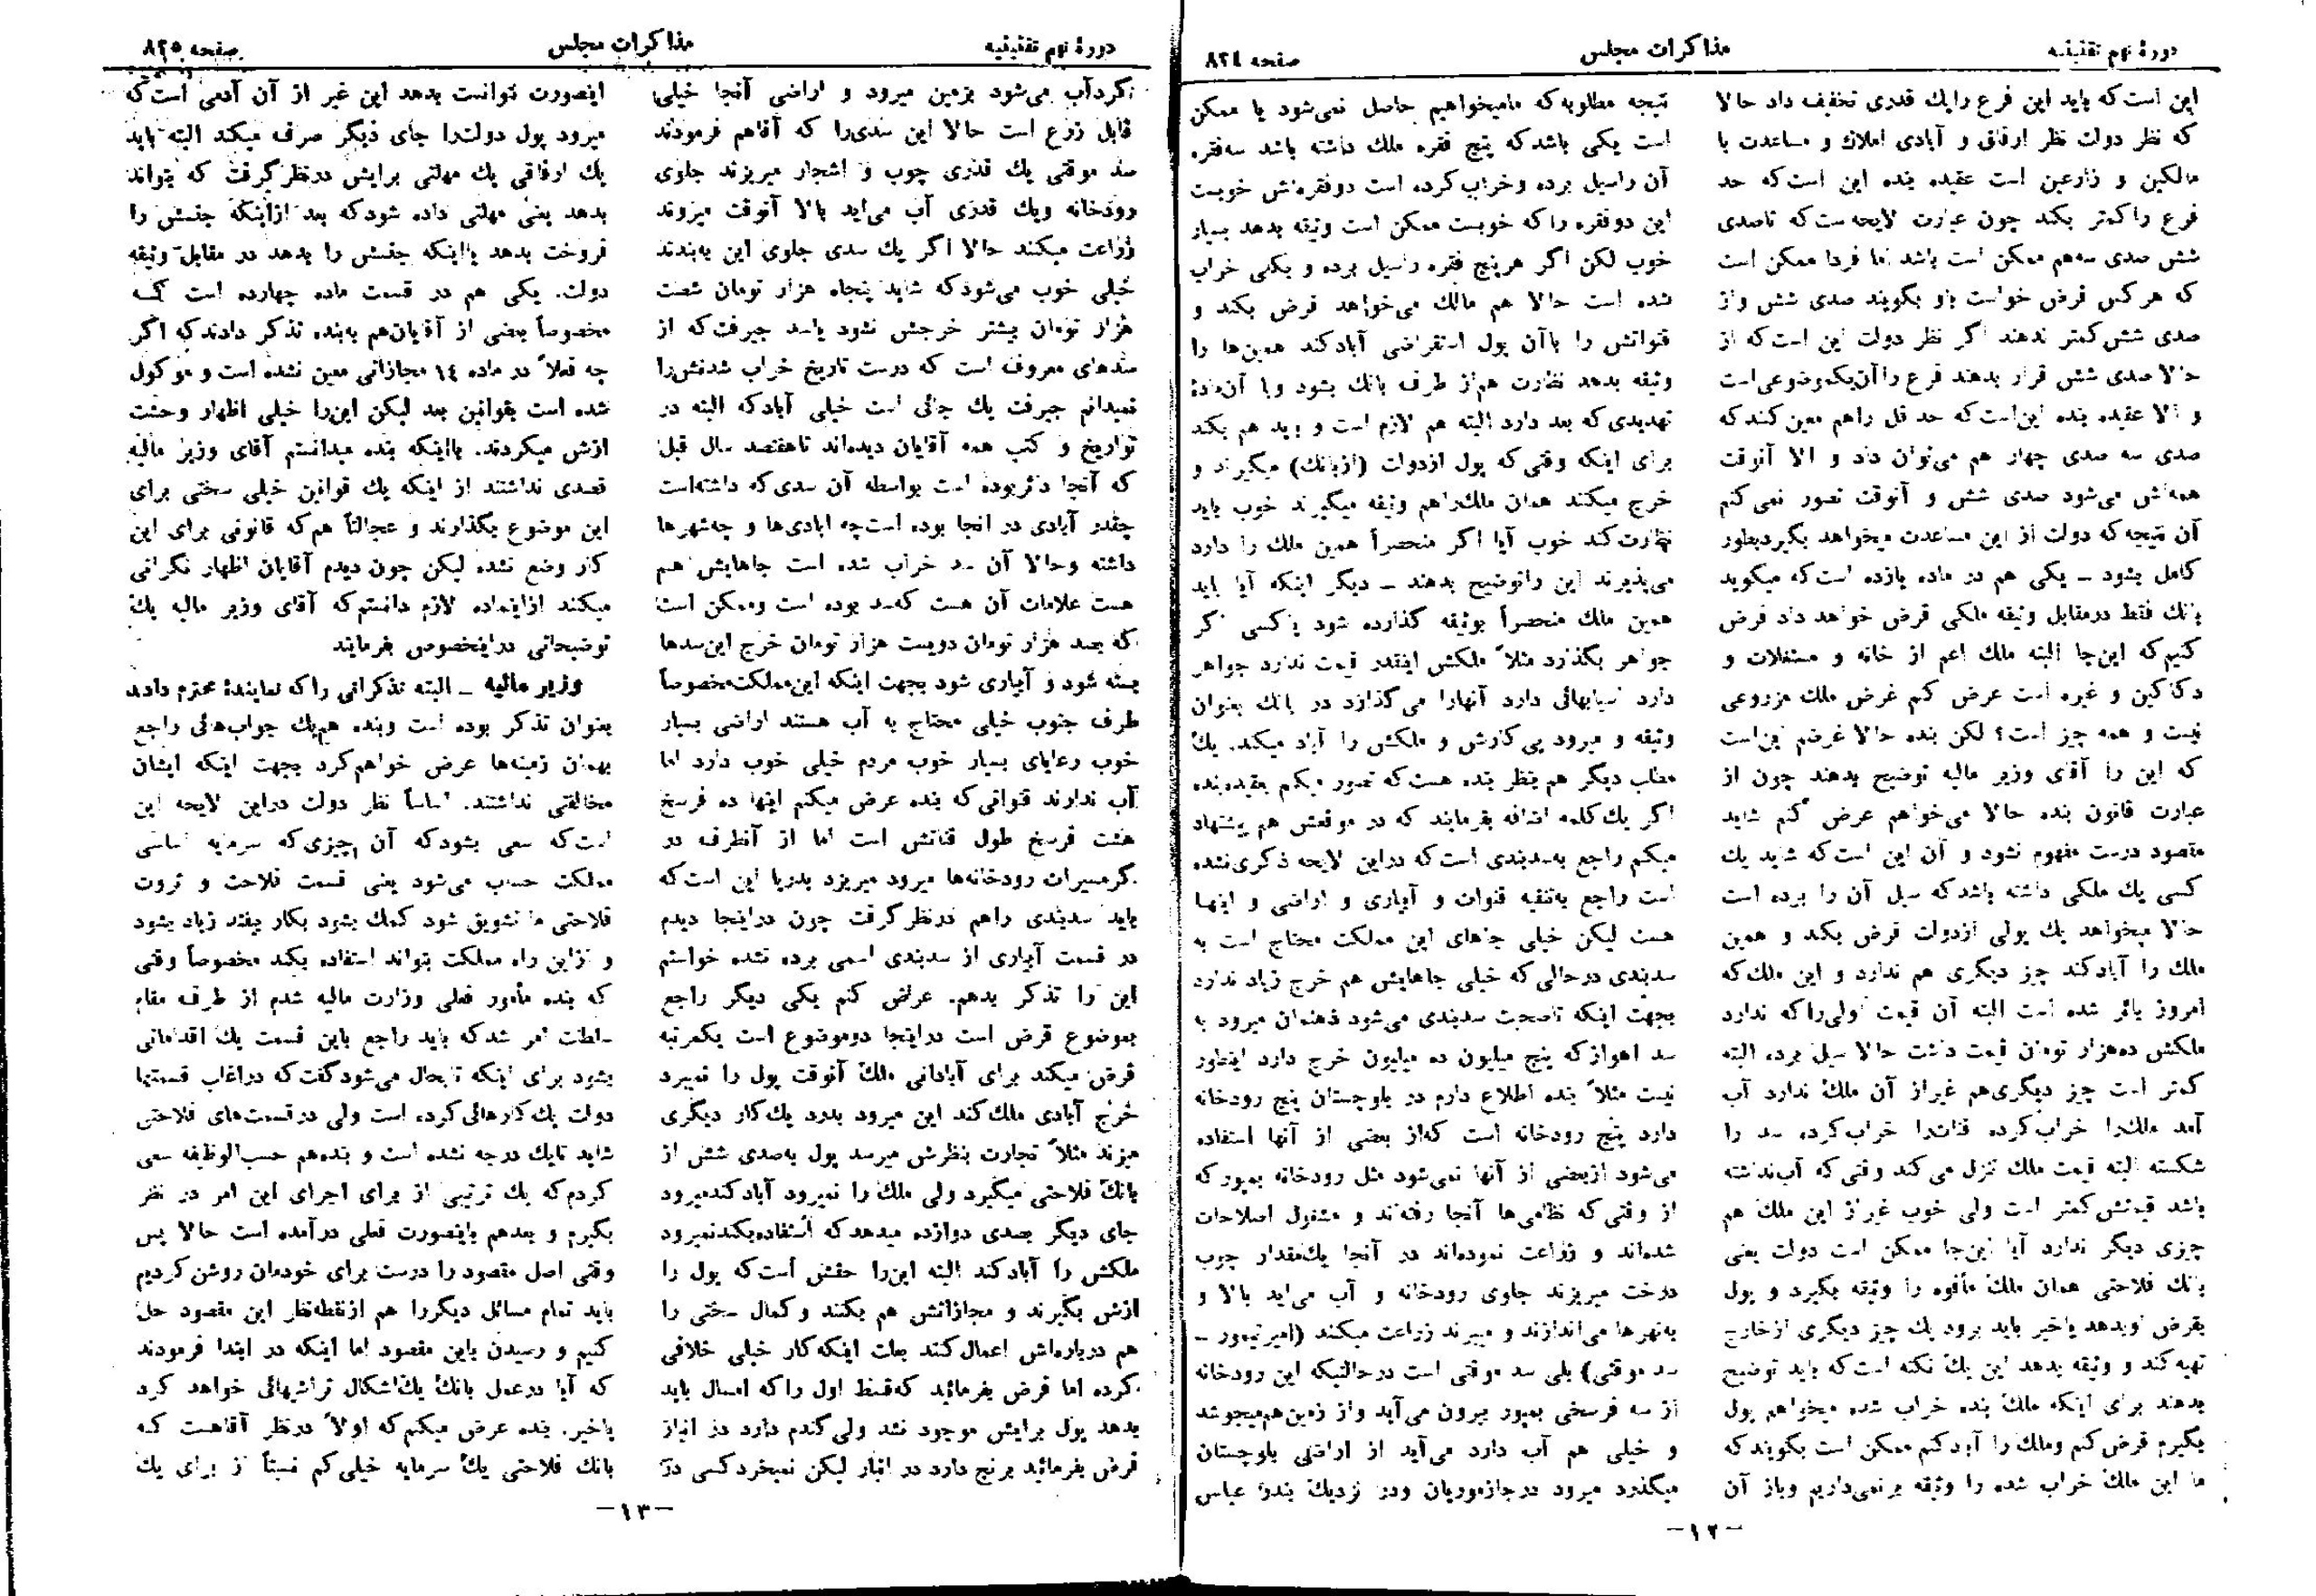 دورهٔ نهم تقنینیه
مذاکرات مجلس
صفحه ۸۲٤
این است که باید این فرع را یك قدری تخفیف داد حالا
که نظر دولت نظر ارفاقی و آبادی املاك و مساعدت با
مالکین و زارعین است عقیده بنده این است که حد
فرع را کمتر بکند چون عبارت لایحه ست که تاصدی
شش صدی سه هم ممکن است باشد اما فردا ممکن است
که هر کس قرض خواست باو بگویند صدی شش و از
صدی شش کمتر ندهند اگر نظر دولت این است که از
حالا صدی شش قرار بدهند فرع را آن یک موضوعی است
و الا عقیده بنده این است که حد قل را هم معین کنند که
صدی سه صدی چهار هم می‌توان داد و الا آنوقت
همه‌اش می‌شود صدی شش و آنوقت تصور نمی کنم
آن نتیجه که دولت از این مساعدت میخواهد بگیرد بطور
کامل بشود ـ یکی هم در ماده یازده است که میگوید
بانك فقط در مقابل وثیقه ملکی قرض خواهد داد فرض
کنیم که این جا البته ملك اعم از خانه و مستغلات و
دکاکین و غیره است عرض کنم غرض ملك مزروعی
نیست و همه چیز است؟ لکن بنده حالا غرضم این است
که این را آقای وزیر مالیه توضیح بدهند چون از
عبارت قانون بنده حالا می‌خواهم عرض کنم شاید
مقصود درست مفهوم نشود و آن این است که شاید یك
کسی یك ملکی داشته باشد که سیل آن را برده است
حالا میخواهد یك پولی از دولت قرض بکند و همین
ملك را آباد کند چیز دیگری هم ندارد و این ملك که
امروز بائر شده است البته آن قیمت اولی را که ندارد
ملکش ده هزار تومان قیمت داشت حالا سیل برده البته
کمتر است چیز دیگری هم غیر از آن ملك ندارد آب
آمد ملك را خراب کرده قنات را خراب کرده سد را
شکسته البته قیمت ملك تنزل می کند وقتی که آب نداشته
باشد قیمتش کمتر است ولی خوب غیر از این ملك هم
چیزی دیگر ندارد آیا این جا ممکن است دولت یعنی
بانك فلاحتی همان ملك مأفوه را وثیقه بگیرد و پول
بقرض او بدهد یا خیر باید برود یك چیز دیگری از خارج
تهیه کند و وثیقه بدهد این یك نکته است که باید توضیح
بدهند برای اینکه ملك بنده خراب شده میخواهم پول
بگیرم قرض کنم و ملك را آباد کنم ممکن است بگویند که
ما این ملك خراب شده را وثیقه بر نمی‌داریم و باز آن
نتیجه مطلوبه که ما میخواهیم حاصل نمی‌شود یا ممکن
است یکی باشد که پنج فقره ملك داشته باشد سه فقره
آن را سیل برده و خراب کرده است دو فقره‌اش خوبست
این دو فقره را که خوبست ممکن است وثیقه بدهد بسیار
خوب لکن اگر هر پنج فقره را سیل برده و یکی خراب
شده است حالا هم مالك می‌خواهد قرض بکند و
قنواتش را با آن پول استقراضی آباد کند همین‌ها را
وثیقه بدهد نظارت هم از طرف بانك بشود و با آن مادهٔ
تهدیدی که بعد دارد البته هم لازم است و باید هم بکند
برای اینکه وقتی که پول از دولت (از بانك) میگیرند و
خرج میکند همان ملك را هم وثیقه میگیرند خوب باید
نظارت کند خوب آیا اگر منحصراً همین ملك را دارد
می‌پذیرند این را توضیح بدهند ـ دیگر اینکه آیا باید
همین ملك منحصراً بوثیقه گذارده شود یا کسی اگر
جواهر بگذارد مثلاً ملکش اینقدر قیمت ندارد جواهر
دارد اسبابهائی دارد آنها را می گذارد در بانك بعنوان
وثیقه و میرود پی کارش و ملکش را آباد میکند. یك
مطلب دیگر هم بنظر بنده هست که تصور میکنم بعقیده بنده
اگر یك کلمه اضافه بفرمایند که در موقعش هم پیشنهاد
میکنم راجع به سدبندی است که در این لایحه ذکری نشده
است راجع به تنقیه قنوات و آبیاری و اراضی و اینها
هست لیکن خیلی جاهای این مملکت محتاج است به
سدبندی در حالی که خیلی جاهایش هم خرج زیاد ندارد
بجهت اینکه تا صحبت سدبندی می‌شود ذهنمان میرود به
سد اهواز که پنج میلیون ده میلیون خرج دارد اینطور
نیست مثلاً بنده اطلاع دارم در بلوچستان پنج رودخانه
دارد پنج رودخانه است که از بعضی از آنها استفاده
می‌شود از بعضی از آنها نمی‌شود مثل رودخانه بمپور که
از وقتی که نظامی‌ها آنجا رفته‌اند و مشغول اصلاحات
شده‌اند و زراعت نموده‌اند در آنجا یك مقدار چوب
درخت میریزند جلوی رودخانه و آب می‌آید بالا و
به نهرها می‌اندازند و میبرند زراعت میکنند (امیر تیمور ـ
سد موقتی) بلی سد موقتی است در حالتیکه این رودخانه
از سه فرسخی بمپور بیرون می‌آید و از زمین هم میجوشد
و خیلی هم آب دارد می‌آید از اراضی بلوچستان
میگذرد میرود در جازموریان و در نزدیك بندر عباس
ـ۱۲ـ
دورهٔ نهم تقنینیه
مذاکرات مجلس
صفحه ۸۲۵
گرداب می‌شود بزمین میرود و اراضی آنجا خیلی
قابل زرع است حالا این سدی را که آقا هم فرمودند
سد موقتی یك قدری چوب و اشجار میریزند جلوی
رودخانه و یك قدری آب می‌آید بالا آنوقت میروند
زراعت میکنند حالا اگر یك سدی جلوی این به‌بندند
خیلی خوب می‌شود که شاید پنجاه هزار تومان شصت
هزار تومان بیشتر خرجش نشود یا سد جیرفت که از
سدهای معروف است که درست تاریخ خراب شدنش را
نمیدانم جیرفت یك جائی است خیلی آباد که البته در
تواریخ و کتب همه آقایان دیده‌اند تا هفتصد سال قبل
که آنجا دائر بوده است بواسطه آن سدی که داشته است
چقدر آبادی در آنجا بوده است چه آبادی‌ها و چه شهرها
داشته و حالا آن سد خراب شده است جاهایش هم
هست علامات آن هست که سد بوده است و ممکن است
که بصد هزار تومان دویست هزار تومان خرج این سدها
بسته شود و آبیاری شود بجهت اینکه این مملکت مخصوصاً
طرف جنوب خیلی محتاج به آب هستند اراضی بسیار
خوب رعایای بسیار خوب مردم خیلی خوب دارد اما
آب ندارند قنواتی که بنده عرض میکنم اینها ده فرسخ
هشت فرسخ طول قناتش است اما از آنطرف در
گرمسیرات رودخانه‌ها میرود میریزد بدریا این است که
باید سدبندی را هم در نظر گرفت چون در اینجا دیدم
در قسمت آبیاری از سدبندی اسمی برده نشده خواستم
این را تذکر بدهم. عرض کنم یکی دیگر راجع
بموضوع قرض است در اینجا دو موضوع است یکمرتبه
قرض میکند برای آبادانی ملك آنوقت پول را نمیبرد
خرج آبادی ملك کند این میرود بدرد یك کار دیگری
میزند مثلاً تجارت بنظرش میرسد پول به صدی شش از
بانك فلاحتی میگیرد ولی ملك را نمیرود آباد کند میرود
جای دیگر بصدی دوازده میدهد که استفاده بکند نمیرود
ملکش را آباد کند البته این را حقش است که پول را
ازش بگیرند و مجازاتش هم بکنند و کمال سختی را
هم درباره‌اش اعمال کنند بعلت اینکه کار خیلی خلافی
کرده اما فرض بفرمائید که قسط اول را که امسال باید
بدهد پول برایش موجود نشد ولی گندم دارد در انبار
فرض بفرمائید برنج دارد در انبار لیکن نمیخرد کسی در
اینصورت نتوانست بدهد این غیر از آن آدمی است که
میرود پول دولت را جای دیگر صرف میکند البته باید
یك ارفاقی یك مهلتی برایش در نظر گرفت که بتواند
بدهد یعنی مهلتی داده شود که بعد از اینکه جنسش را
فروخت بدهد یا اینکه جنسش را بدهد در مقابل وثیقه
دولت. یکی هم در قسمت ماده چهارده است که
مخصوصاً بعضی از آقایان هم به‌بنده تذکر دادند که اگر
چه فعلاً در ماده ۱٤ مجازاتی معین نشده است و موکول
شده است بقوانین بعد لیکن این را خیلی اظهار وحشت
ازش میکردند. با اینکه بنده میدانستم آقای وزیر مالیه
قصدی نداشتند از اینکه یك قوانین خیلی سختی برای
این موضوع بگذارند و عجالتاً هم که قانونی برای این
کار وضع نشده لیکن چون دیدم آقایان اظهار نگرانی
میکنند از این ماده لازم دانستم که آقای وزیر مالیه یك
توضیحاتی در اینخصوص بفرمایند
وزیر مالیه ـ البته تذکراتی را که نمایندهٔ محترم دادند
بعنوان تذکر بوده است و بنده هم یك جواب‌هائی راجع
بهمان زمینه‌ها عرض خواهم کرد بجهت اینکه ایشان
مخالفتی نداشتند. اساساً نظر دولت در این لایحه این
است که سعی بشود که آن چیزی که سرمایه اساسی
مملکت حساب می‌شود یعنی قسمت فلاحت و ثروت
فلاحتی ما تشویق شود کمك بشود بکار بیفتد زیاد بشود
و از این راه مملکت بتواند استفاده بکند مخصوصاً وقتی
که بنده مأمور فعلی وزارت مالیه شدم از طرف مقام
سلطنت امر شد که باید راجع باین قسمت یك اقداماتی
بشود برای اینکه تابحال می‌شود گفت که در اغلب قسمتها
دولت یك کارهائی کرده است ولی در قسمت‌های فلاحتی
شاید تا یك درجه نشده است و بنده هم حسب‌الوظیفه سعی
کردم که یك ترتیبی از برای اجرای این امر در نظر
بگیرم و بعد هم باینصورت فعلی در آمده است حالا پس
وقتی اصل مقصود را درست برای خودمان روشن کردیم
باید تمام مسائل دیگر را هم از نقطه نظر این مقصود حل
کنیم و رسیدن باین مقصود اما اینکه در ابتدا فرمودند
که آیا در عمل بانك یك اشکال تراشیهائی خواهد کرد
یا خیر. بنده عرض میکنم که اولاً در نظر آقا هست که
بانك فلاحتی یك سرمایه خیلی کم نسبتاً از برای یك
ـ۱۳ـ